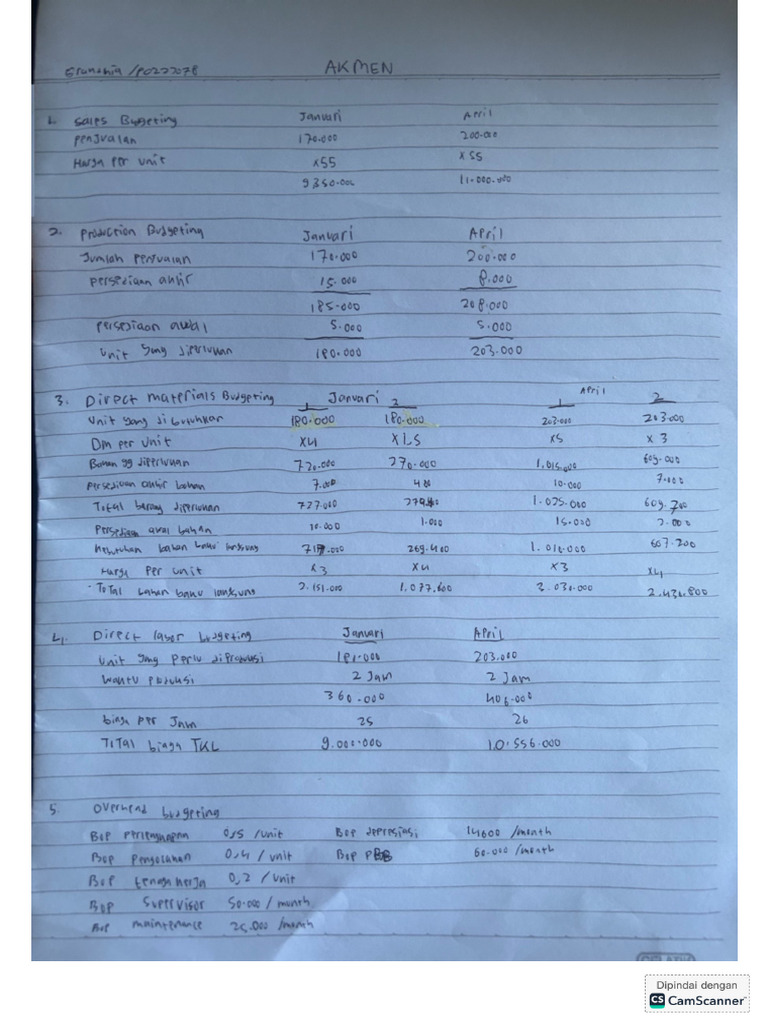 Erandhia /P0227078 AKMEN
1. Sales Budgeting Januari April
Penjualan 170.000 200.000
Harga Per unit x55 x55
9350.000 11.000.000
2. Production Budgeting Januari April
Jumlah Penjualan 170.000 200.000
Persediaan akhir 15.000 8.000
185.000 208.000
Persediaan awal 5.000 5.000
Unit yang diperlukan 180.000 203.000
3. Direct materials Budgeting Januari April
1 2 1 2
Unit yang dibutuhkan 180.000 180.000 203.000 203.000
Dm per Unit x4 x1,5 x5 x 3
Bahan yg diperlukan 720.000 270.000 1.015.000 609.000
Persediaan akhir bahan 7.000 400 10.000
Total barang diperlukan 727.000 1.025.000 609.200
Persediaan awal bahan 10.000 1.000 15.000 2.000
Kebutuhan bahan baku langsung 717.000 269.400 1.010.000 607.200
Harga Per unit x3 x4 x3 x4
Total bahan baku langsung 2.151.000 1.077.600 3.030.000 2.431.800
4. Direct labor budgeting Januari April
Unit yang perlu diproduksi 181.000 203.000
Waktu produksi 2 Jam 2 Jam
360.000 406.000
biaya per Jam 25 26
Total biaya TKL 9.000.000 10.556.000
5. Overhead budgeting
BOP perlengkapan 0,5 /unit BOP depresiasi 14600 /month
BOP Pengolahan 0,4 / unit BOP PBB 60.000 /month
BOP tenaga kerja 0,2 / unit
BOP Supervisor 50.000 / month
BOP maintenance 25.000 /month
Dipindai dengan
CS CamScanner